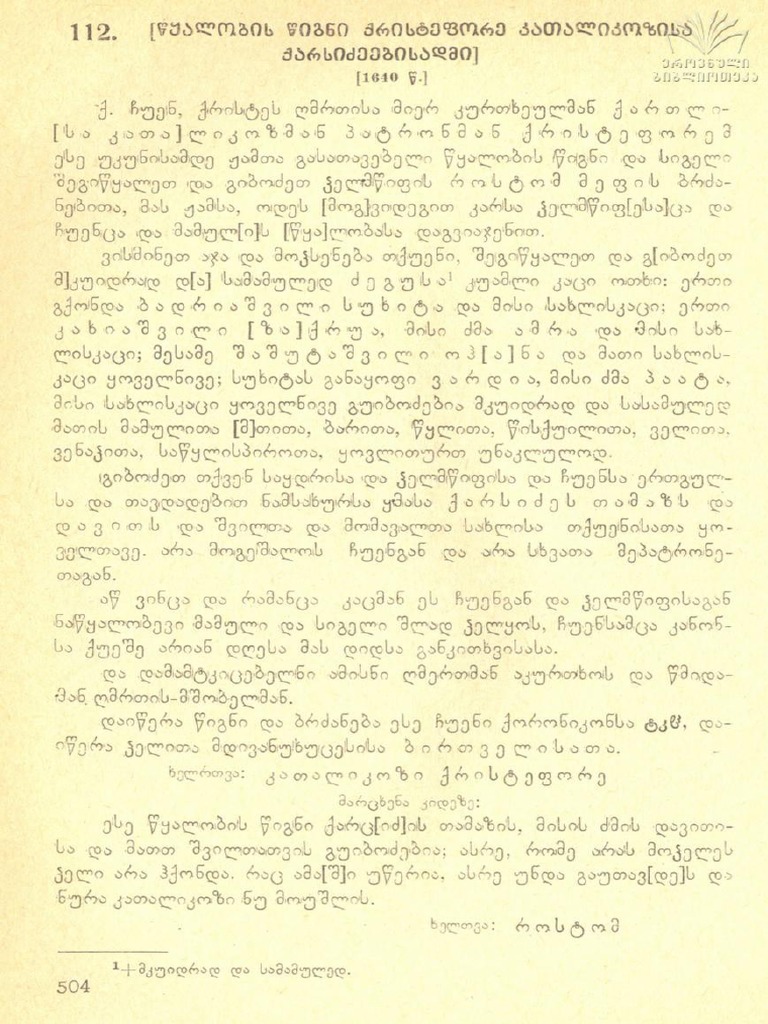 112. [წყალობის წიგნი ქრისტეფორე კათალიკოზისა
ქარსიძეებისადმი]
[1640 წ.]
ეროვნული
ბიბლიოთეკა
ქ. ჩუენ, ქრისტეს ღმრთისა მიერ კურთხეულმან ქართლი-
[სა კათა]ლიკოზმან პატრონმან ქრისტეფორემ
ესე უკუნისამდე ჟამთა გასათავებელი წყალობის წიგნი და სიგელი
შეგიწყალეთ და გიბოძეთ ჴელმწიფის როსტომ მეფის ბრძა-
ნებითა, მას ჟამსა, ოდეს [მოგ]ვიდეგით კარსა ჴელმწიფ[ესა]ცა და
ჩუენცა და მამულ[ი]ს [წყა]ლობასა დაგვიაჯენით.
ვისმინეთ აჯა და მოჴსენება თქუენი, შეგიწყალეთ და გ[იბოძეთ
მ]კუიდრად დ[ა] სამამულედ ძეგუსა¹ კუამლი კაცი ოთხი: ერთი
გქონდა ბადრიაშვილი სუხიტა და მისი სახლისკაცი; ერთი
კახიაშვილი [ზა]ქრუა, მისი ძმა ამრა და მისი სახ-
ლისკაცი; მესამე შაშუტაშვილი ოჰ[ა]ნა და მათი სახლის-
კაცი ყოველნივე; სუხიტას განაყოფი ვარდია, მისი ძმა პაატა,
მისი სახლისკაცი ყოველნივე გუიბოძებია მკუიდრად და სასამულედ
მათის მამულითა [მ]თითა, ბარითა, წყლითა, წისქუილითა, ველითა,
ვენაჴითა, საწყლისპიროთა, ყოვლითურთ უნაკლულოდ.
გიბოძეთ თქვენ საყდრისა და ჴელმწიფისა და ჩუენსა ერთგულ-
სა და თავდადებით ნამსახურსა ყმასა ქარსიძეს თამაზს და
დავითს და შვილთა და მომავალთა სახლისა თქუენისათა ყო-
ველთავე. არა მოგეშალოს ჩუენგან და არა სხვათა მეპატრონე-
თაგან.
აწ ვინცა და რამანცა კაცმან ეს ჩუენგან და ჴელმწიფისაგან
ნაწყალობევი მამული და სიგელი შლად ჴელყოს, ჩუენსამცა კანონ-
სა ქუეშე არიან დღესა მას დიდსა განკითხვისასა.
და დამამტკიცებელნი ამისნი ღმერთმან აკურთხოს და წმიდა-
მან ღმრთის-მშობელმან.
დაიწერა წიგნი და ბრძანება ესე ჩუენი ქორონიკონსა ტკჱ, და-
იწერა ჴელითა მდივანუხუცესისა ბირთველისათა.
ხელრთვა: კათალიკოზი ქრისტეფორე
მარცხენა კიდეზე:
ესე წყალობის წიგნი ქარც[იძ]ის თამაზის, მისის ძმის დავითი-
სა და მათთ შვილთათვის გუიბოძებია; ასრე, რომე არას მოჴელეს
ჴელი არა ჰქონდა. რაც ამა[შ]ი უწერია, ასრე უნდა გაუთავ[დე]ს და
ნურა კათალიკოზი ნუ მოუშლის.
ხელთვა: როსტომ
¹+მკუიდრად და სამამულედ.
504